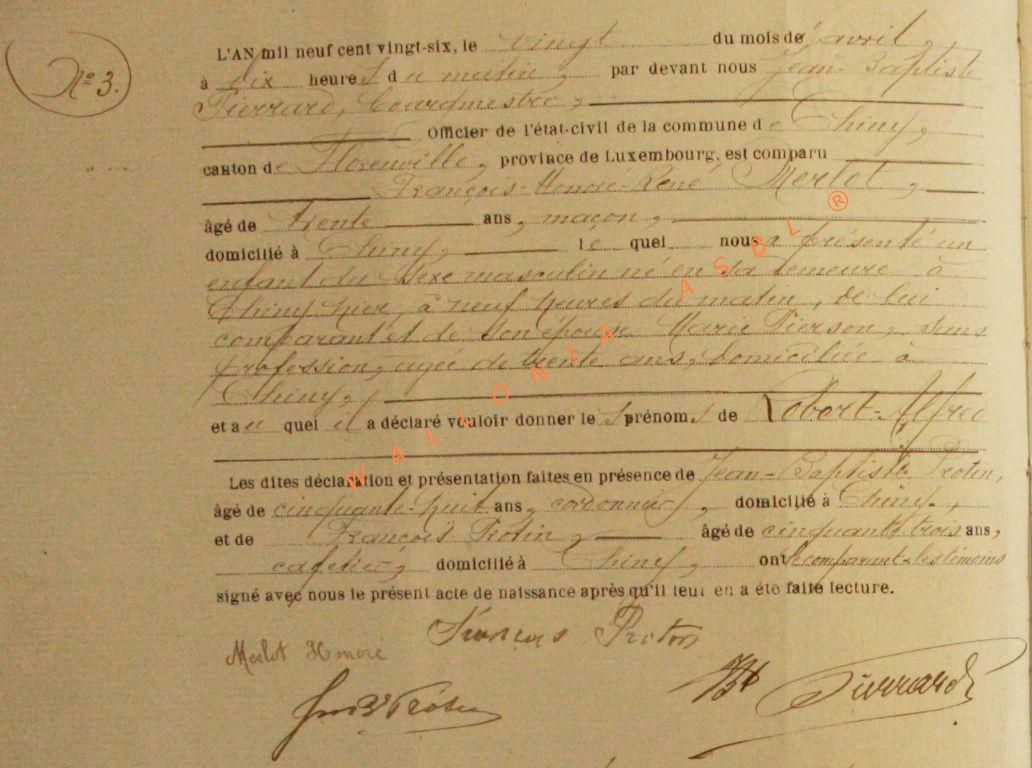 N° 3.
L'AN mil neuf cent vingt-six, le vingt du mois de avril,
à dix heures du matin, par devant nous Jean-Baptiste
Pierrard, Bourgmestre,
Officier de l'état-civil de la commune de Chiny,
canton de Florenville, province de Luxembourg, est comparu
François-Honoré-René Merlot,
âgé de trente ans, maçon,
domicilié à Chiny, le quel nous a présenté un
enfant du sexe masculin né en sa demeure à
Chiny hier, à neuf heures du matin, de lui
comparant et de son épouse Marie Pierson, sans
profession, agée de trente ans, domiciliée à
Chiny,
et au quel il a déclaré vouloir donner les prénoms de Robert-Alfred
Les dites déclaration et présentation faites en présence de Jean-Baptiste Protin,
âgé de cinquante-huit ans, cordonnier, domicilié à Chiny,
et de François Protin, âgé de cinquante trois ans,
cafetier, domicilié à Chiny, ont le comparant & les témoins
signé avec nous le présent acte de naissance après qu'il leur en a été faite lecture.
François Protin
Merlot Honoré
JBte Protin
JB Pierrard
WALLONIA ASBL ®